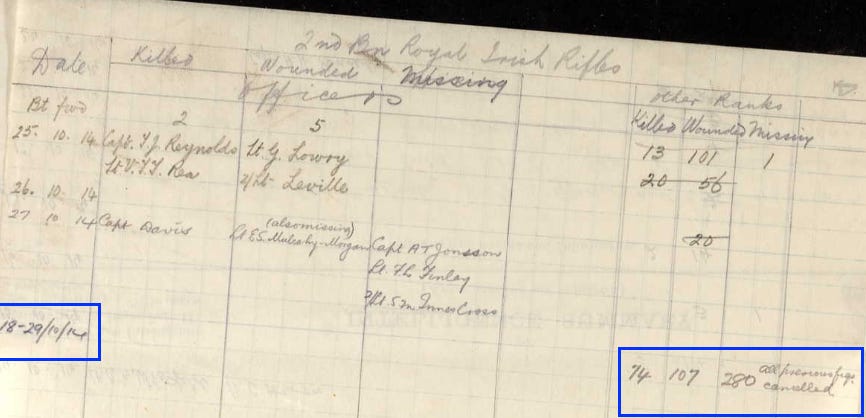 2nd Bn Royal Irish Rifles
Date Killed Wounded Missing
Officers
Other Ranks
Killed Wounded Missing
Bt fwd 2 5
13 101 1
25. 10. 14 Capt. T.J. Reynolds Lt G. Lowry
20 56
Lt V.T.T. Rea 2/Lt Leville
26. 10. 14
20
27 10 14 Capt Davis (also missing)
Lt E.S. Mulcahy-Morgan Capt A T Jonsson
Lt. F.L. Finlay
2/Lt. S.M. Innes Cross
18-29/10/14
74 107 280 All previous figs. cancelled